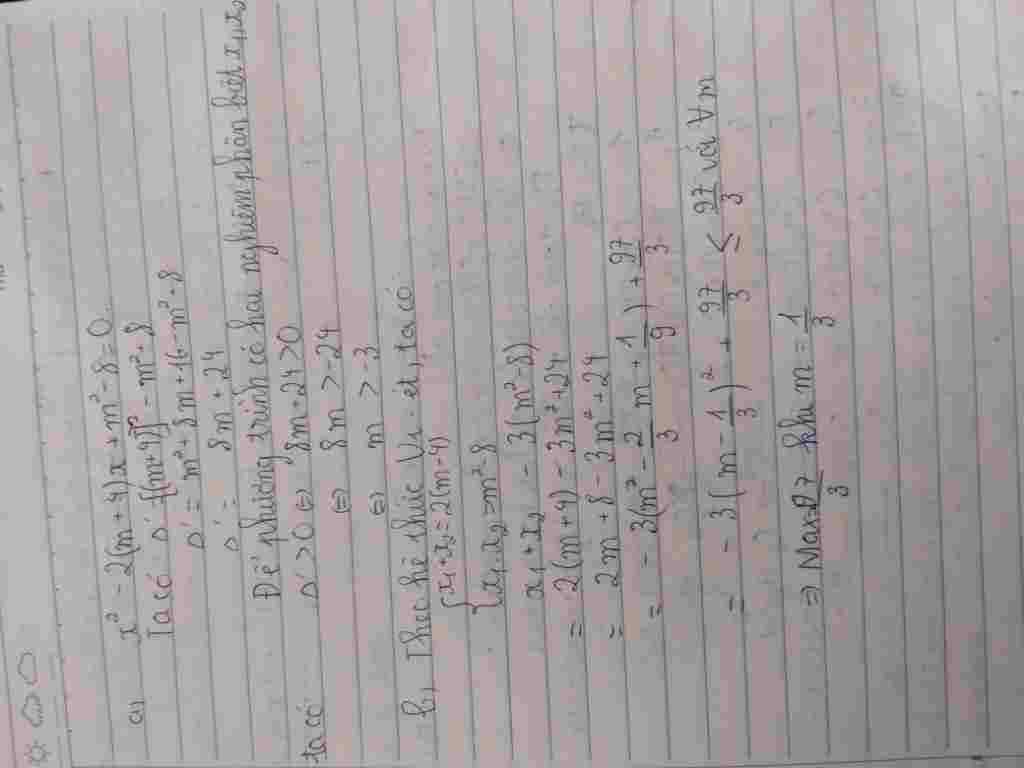 a) x² - 2(m+4)x + m² - 8 = 0
Ta có Δ' = [-(m+4)]² - m² + 8
Δ' = m² + 8m + 16 - m² + 8
Δ' = 8m + 24
Để phương trình có hai nghiệm phân biệt x₁, x₂
ta có Δ' > 0 ⇔ 8m + 24 > 0
⇔ 8m > -24
⇔ m > -3
b, Theo hệ thức Vi-et, ta có
{ x₁ + x₂ = 2(m+4)
x₁.x₂ = m² - 8
x₁ + x₂ - 3(m² - 8)
= 2(m+4) - 3m² + 24
= 2m + 8 - 3m² + 24
= -3(m² - 2/3 m + 1/9) + 97/3
= -3(m - 1/3)² + 97/3 ≤ 97/3 với ∀m
⇒ Max = 97/3 khi m = 1/3